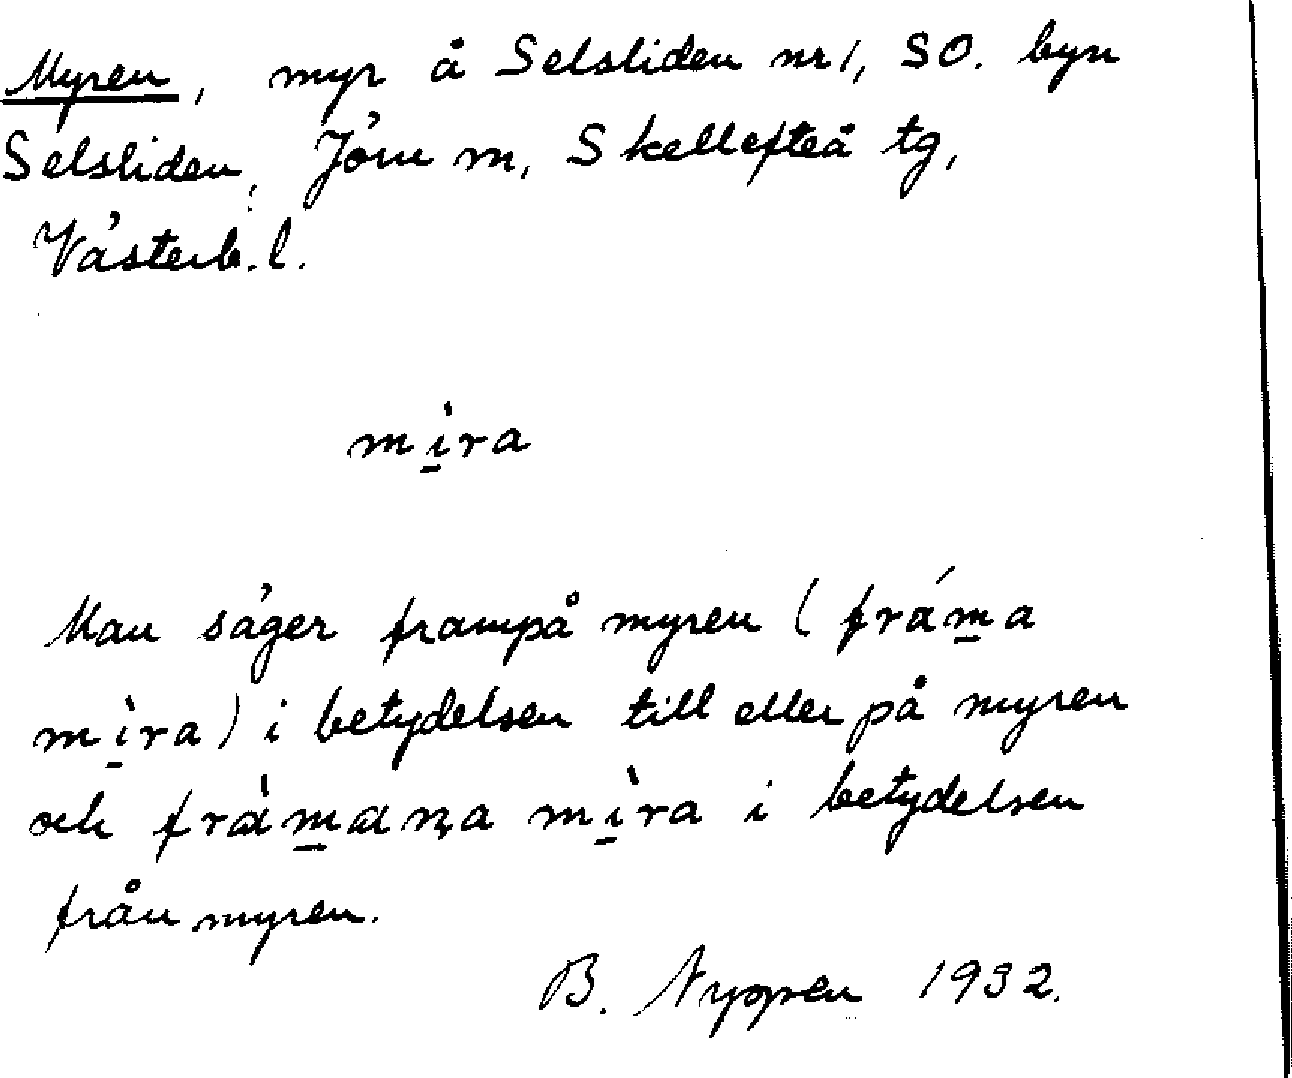 Myren, myr å Selsliden nr 1, SO. byn
Selsliden, Jörn sn, Skellefteå tg,
Västerb. l.
mì̱ra
Man säger frampå myren (frám̱a
mì̱ra) i betydelsen till eller på myren
och fràm̱aṇa mì̱ra i betydelsen
från myren.
B. Nygren 1932.